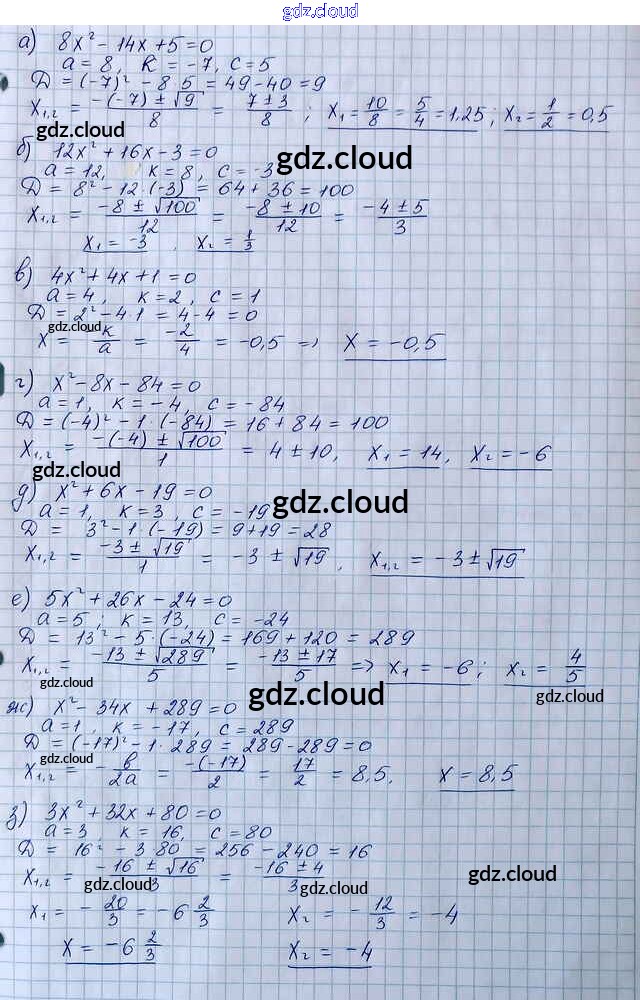 gdz.cloud
а) 8x² - 14x + 5 = 0
a = 8, k = -7, c = 5
D = (-7)² - 8·5 = 49 - 40 = 9
x₁,₂ = (-(-7) ± √9)/8 = (7 ± 3)/8 ; x₁ = 10/8 = 5/4 = 1,25; x₂ = 1/2 = 0,5
gdz.cloud
б) 12x² + 16x - 3 = 0
gdz.cloud
a = 12, k = 8, c = -3
D = 8² - 12·(-3) = 64 + 36 = 100
x₁,₂ = (-8 ± √100)/12 = (-8 ± 10)/12 = (-4 ± 5)/3
x₁ = -3, x₂ = 1/3
в) 4x² + 4x + 1 = 0
a = 4, k = 2, c = 1
D = 2² - 4·1 = 4 - 4 = 0
gdz.cloud
x = -k/a = -2/4 = -0,5 => x = -0,5
г) x² - 8x - 84 = 0
a = 1, k = -4, c = -84
D = (-4)² - 1·(-84) = 16 + 84 = 100
x₁,₂ = (-(-4) ± √100)/1 = 4 ± 10, x₁ = 14, x₂ = -6
gdz.cloud
д) x² + 6x - 19 = 0
gdz.cloud
a = 1, k = 3, c = -19
D = 3² - 1·(-19) = 9 + 19 = 28
x₁,₂ = (-3 ± √19)/1 = -3 ± √19, x₁,₂ = -3 ± √19
е) 5x² + 26x - 24 = 0
a = 5; k = 13, c = -24
D = 13² - 5·(-24) = 169 + 120 = 289
x₁,₂ = (-13 ± √289)/5 = (-13 ± 17)/5 => x₁ = -6; x₂ = 4/5
gdz.cloud
gdz.cloud
gdz.cloud
ж) x² - 34x + 289 = 0
a = 1, k = -17, c = 289
D = (-17)² - 1·289 = 289 - 289 = 0
gdz.cloud
x₁,₂ = -b/2a = -(-17)/2 = 17/2 = 8,5. x = 8,5
з) 3x² + 32x + 80 = 0
a = 3, k = 16, c = 80
D = 16² - 3·80 = 256 - 240 = 16
x₁,₂ = (-16 ± √16)/3 = (-16 ± 4)/3
gdz.cloud
gdz.cloud
gdz.cloud
x₁ = -20/3 = -6 2/3 x₂ = -12/3 = -4
x = -6 2/3 x₂ = -4